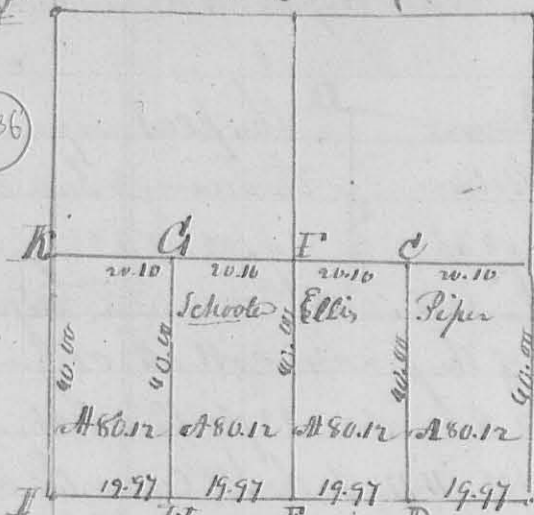 36
K G F C
20.10 20.10 20.10 20.10
Schooler Ellis Piper
40.00 40.00 40.00 40.00 40.00
A 80.12 A 80.12 A 80.12 A 80.12
19.97 19.97 19.97 19.97